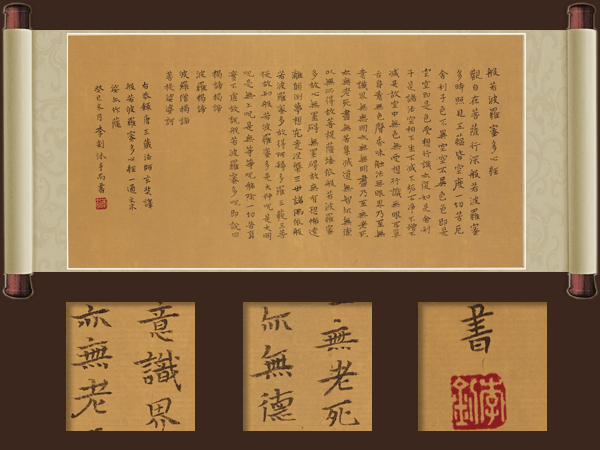 般若波羅蜜多心經
觀自在菩薩行深般若波羅蜜
多時照見五蘊皆空度一切苦厄
舍利子色不異空空不異色色即是
空空即是色受想行識亦復如是舍利
子是諸法空相不生不滅不垢不淨不增不
減是故空中無色無受想行識無眼耳鼻
舌身意無色聲香味觸法無眼界乃至無
意識界無無明亦無無明盡乃至無老死
亦無老死盡無苦集滅道無智亦無德
以無所得故菩提薩埵依般若波羅蜜
多故心無罣礙無罣礙故無有恐怖遠
離顛倒夢想究竟涅槃三世諸佛依般
若波羅蜜多故得阿耨多羅三藐三菩
提故知般若波羅蜜多是大神咒是大明
咒是無上咒是無等等咒能除一切苦真
實不虛故說般若波羅蜜多咒即說曰
揭諦揭諦
波羅揭諦
波羅僧揭諦
菩提薩婆訶
右恭錄唐三藏法師玄奘譯
般若波羅蜜多心經一通
書
意識界
亦無老
無老死
亦無德
書
李釗